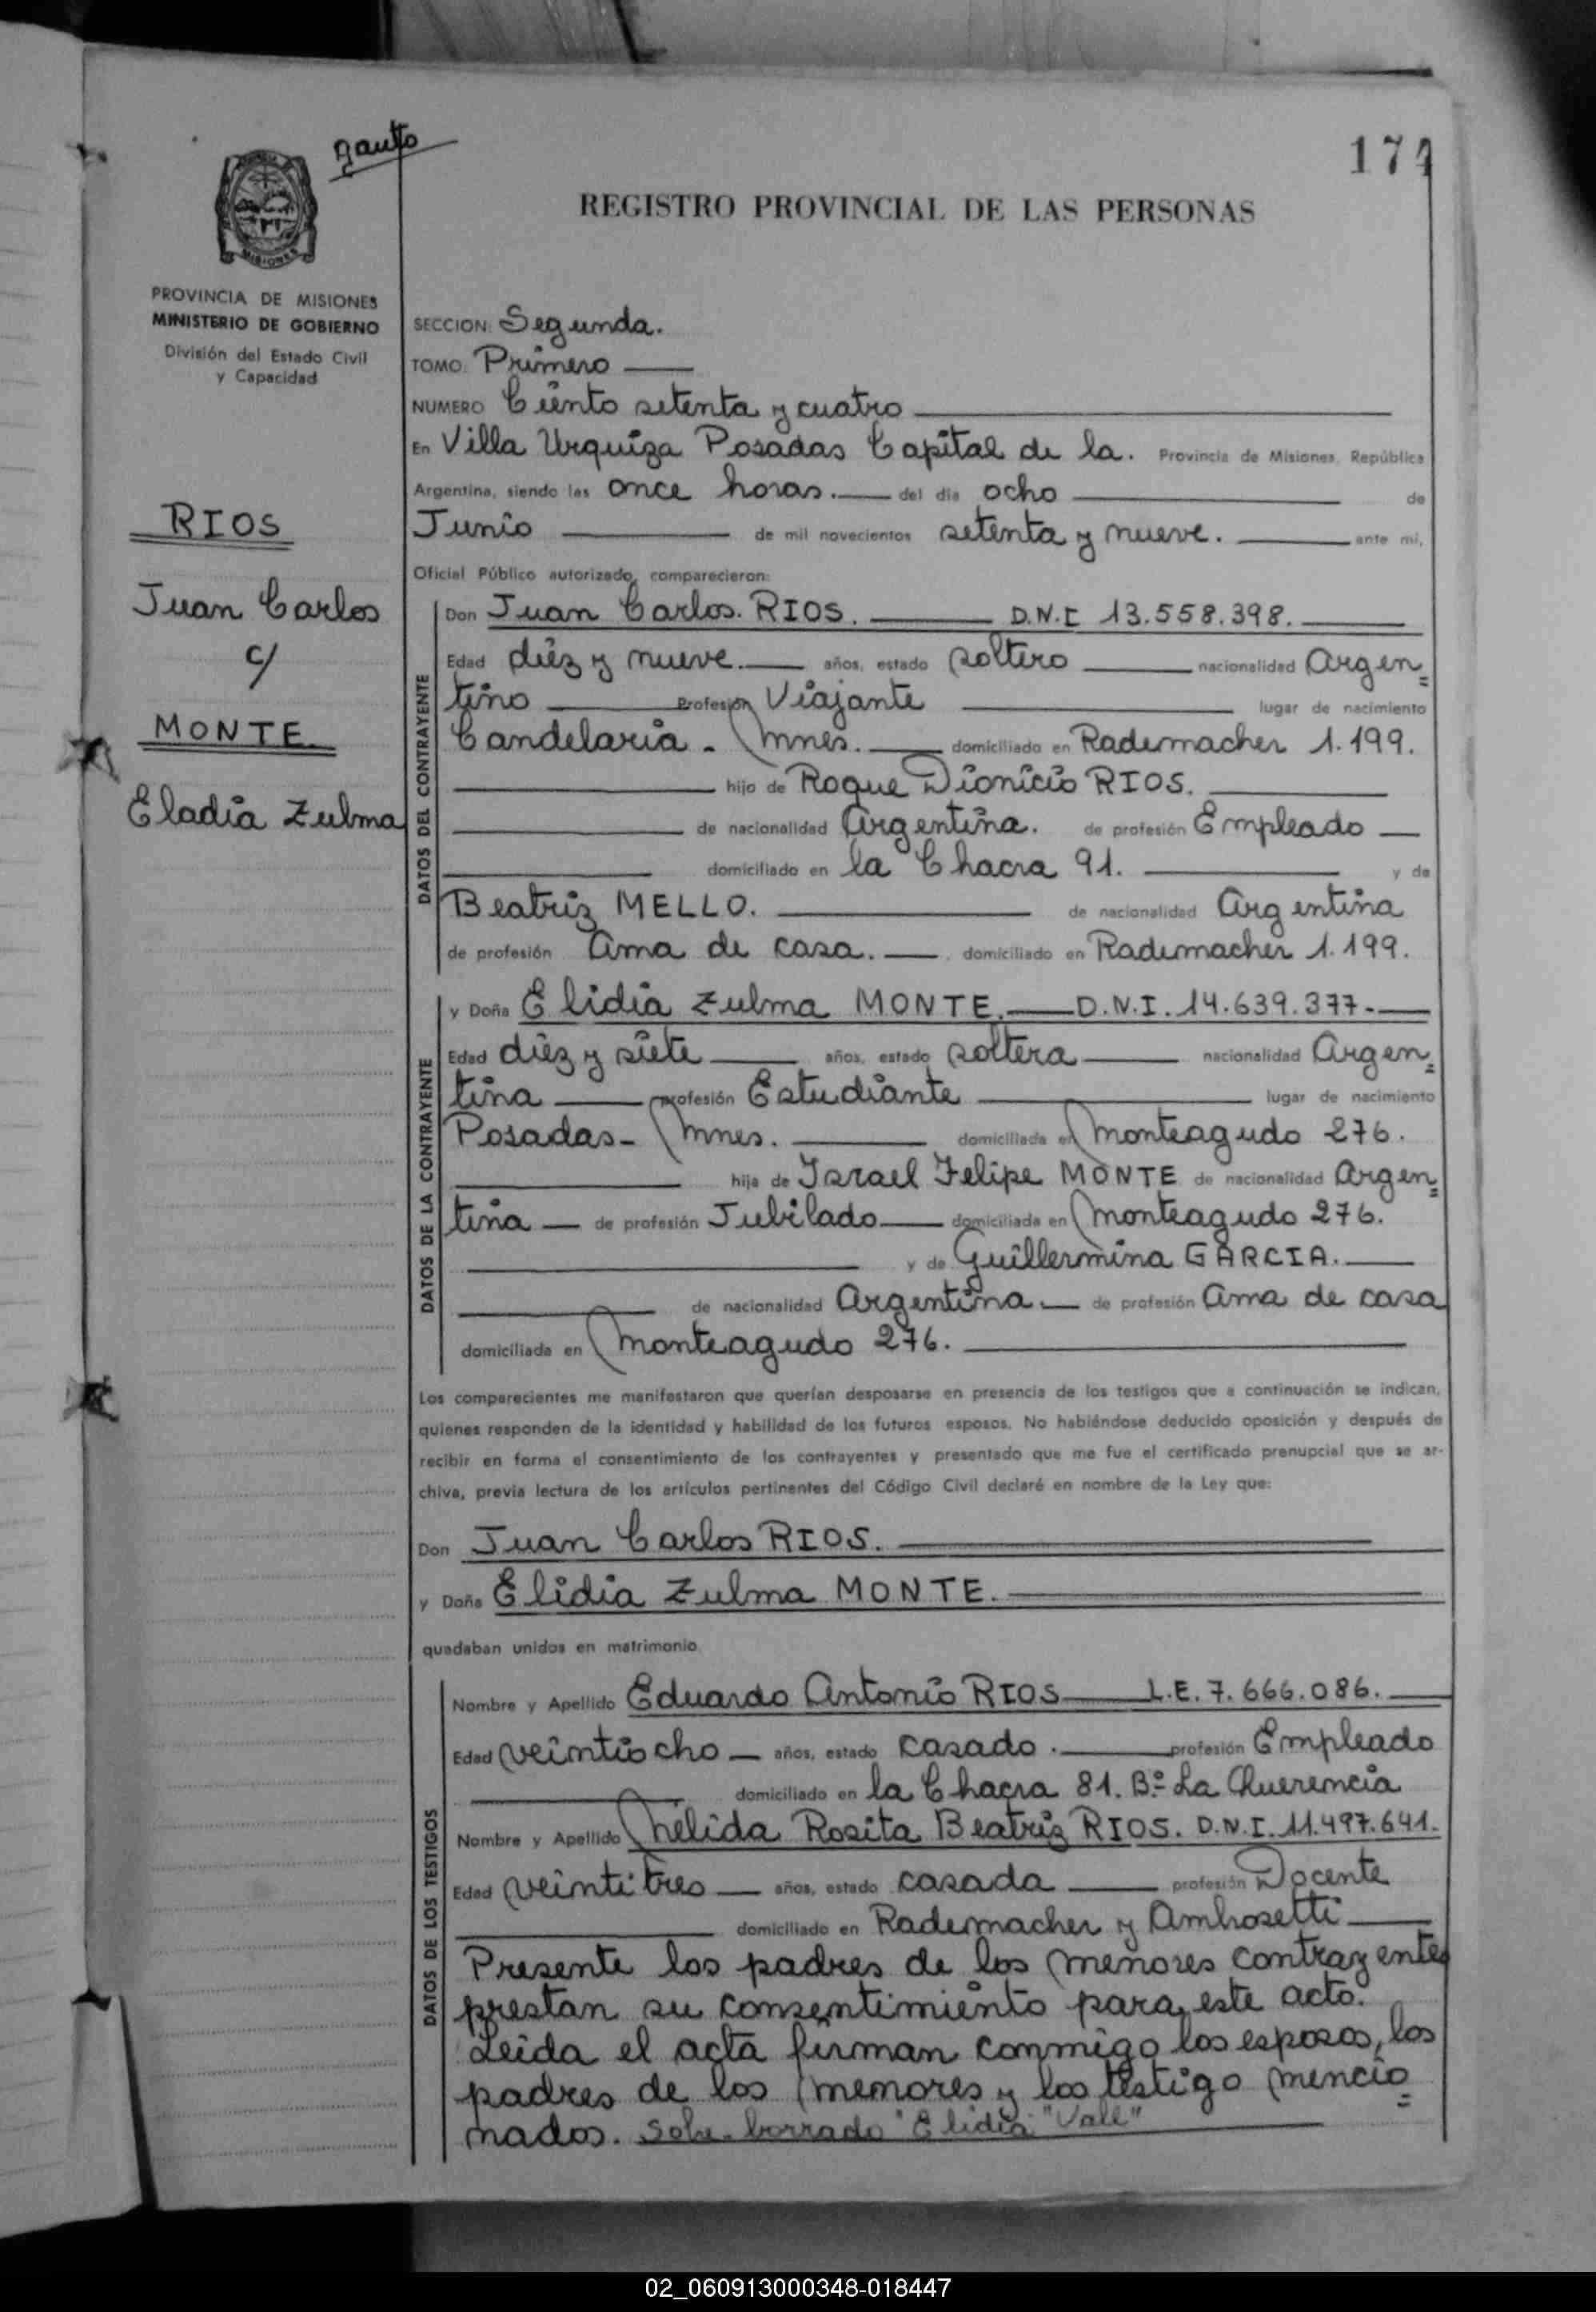 gauto
174
REGISTRO PROVINCIAL DE LAS PERSONAS
MISIONES
PROVINCIA DE MISIONES
MINISTERIO DE GOBIERNO
División del Estado Civil
y Capacidad
RIOS
Juan Carlos
c/
MONTE
Eladia Zulma
SECCION: Segunda.
TOMO: Primero
NUMERO Ciento setenta y cuatro
En Villa Urquiza Posadas Capital de la. Provincia de Misiones, República
Argentina, siendo las once horas. del día ocho de
Junio de mil novecientos setenta y nueve. ante mí,
Oficial Público autorizado, comparecieron:
DATOS DEL CONTRAYENTE
Don Juan Carlos. RIOS. D.N.I 13.558.398.
Edad diez y nueve. años, estado soltero nacionalidad Argen=
tino Profesión Viajante lugar de nacimiento
Candelaria - Mnes. domiciliado en Rademacher 1.199.
hijo de Roque Dionicio RIOS.
de nacionalidad Argentina. de profesión Empleado
domiciliado en la Chacra 91. y de
Beatriz MELLO. de nacionalidad Argentina
de profesión Ama de casa. domiciliado en Rademacher 1.199.
DATOS DE LA CONTRAYENTE
y Doña Elidia Zulma MONTE. D.N.I. 14.639.377-
Edad diez y siete años, estado soltera nacionalidad Argen=
tina profesión Estudiante lugar de nacimiento
Posadas- Mnes. domiciliada en Monteagudo 276.
hija de Israel Felipe MONTE de nacionalidad Argen=
tina de profesión Jubilado domiciliada en Monteagudo 276.
y de Guillermina GARCIA.
de nacionalidad Argentina de profesión Ama de casa
domiciliada en Monteagudo 276.
Los comparecientes me manifestaron que querían desposarse en presencia de los testigos que a continuación se indican,
quienes responden de la identidad y habilidad de los futuros esposos. No habiéndose deducido oposición y después de
recibir en forma el consentimiento de los contrayentes y presentado que me fue el certificado prenupcial que se ar-
chiva, previa lectura de los artículos pertinentes del Código Civil declaré en nombre de la Ley que:
Don Juan Carlos RIOS.
y Doña Elidia Zulma MONTE.
quedaban unidos en matrimonio
DATOS DE LOS TESTIGOS
Nombre y Apellido Eduardo Antonio RIOS L.E. 7.666.086.
Edad veintiocho años, estado casado. profesión Empleado
domiciliado en la Chacra 81. Bº La Querencia
Nombre y Apellido Nélida Rosita Beatriz RIOS. D.N.I. 11.497.641.
Edad veintitres años, estado casada profesión Docente
domiciliado en Rademacher y Ambrosetti
Presente los padres de los menores contrayentes
prestan su consentimiento para este acto.
Leida el acta firman conmigo los esposos, los
padres de los menores y los testigo mencio=
nados. Sobre borrado "Elidia" "Vale"
02_060913000348-018447